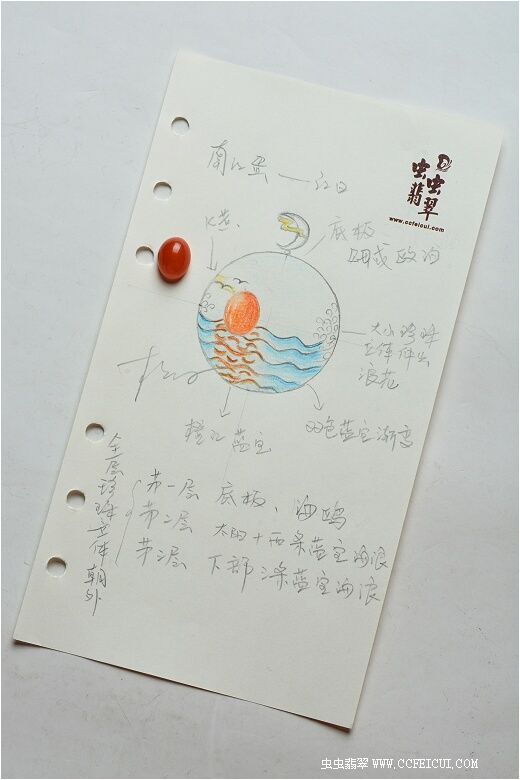 南红蛋 — 红日
虫虫翡翠
www.ccfeicui.com
K黄
底板
大小珍珠
立体伸出
浪花
橙红蓝宝
双色蓝宝渐变
全层珍珠立体朝外
第一层 底板、海鸥
第二层 太阳+两条蓝宝海浪
第三层 下部三条蓝宝海浪
虫虫翡翠 WWW.CCFEICUI.COM